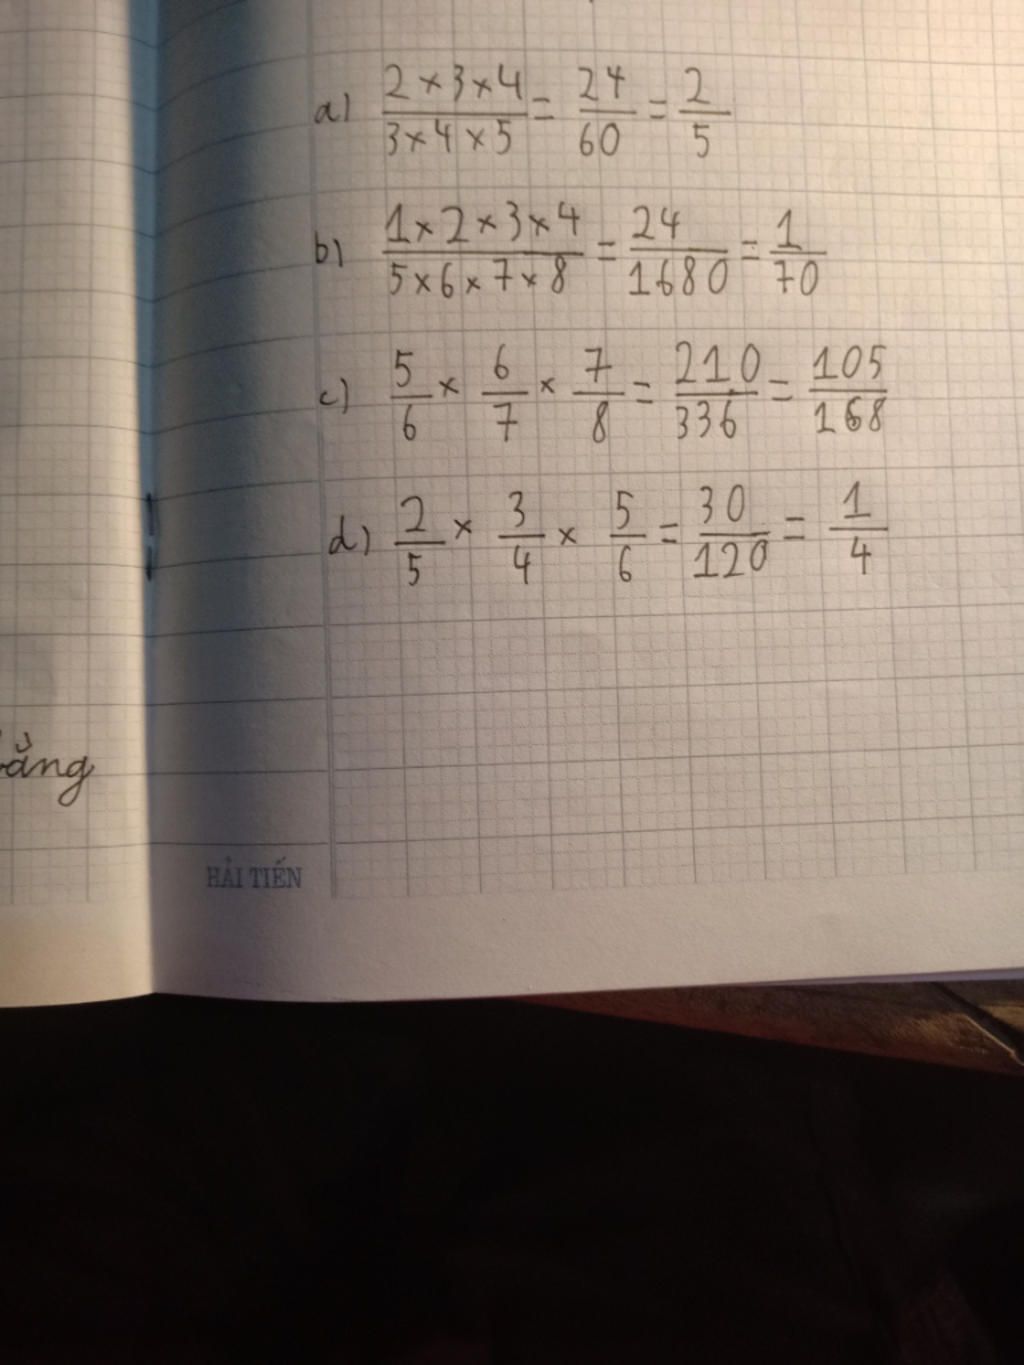 a) 2 × 3 × 4 / 3 × 4 × 5 = 24/60 = 2/5
b) 1 × 2 × 3 × 4 / 5 × 6 × 7 × 8 = 24/1680 = 1/70
c) 5/6 × 6/7 × 7/8 = 210/336 = 105/168
d) 2/5 × 3/4 × 5/6 = 30/120 = 1/4
HẢI TIẾN